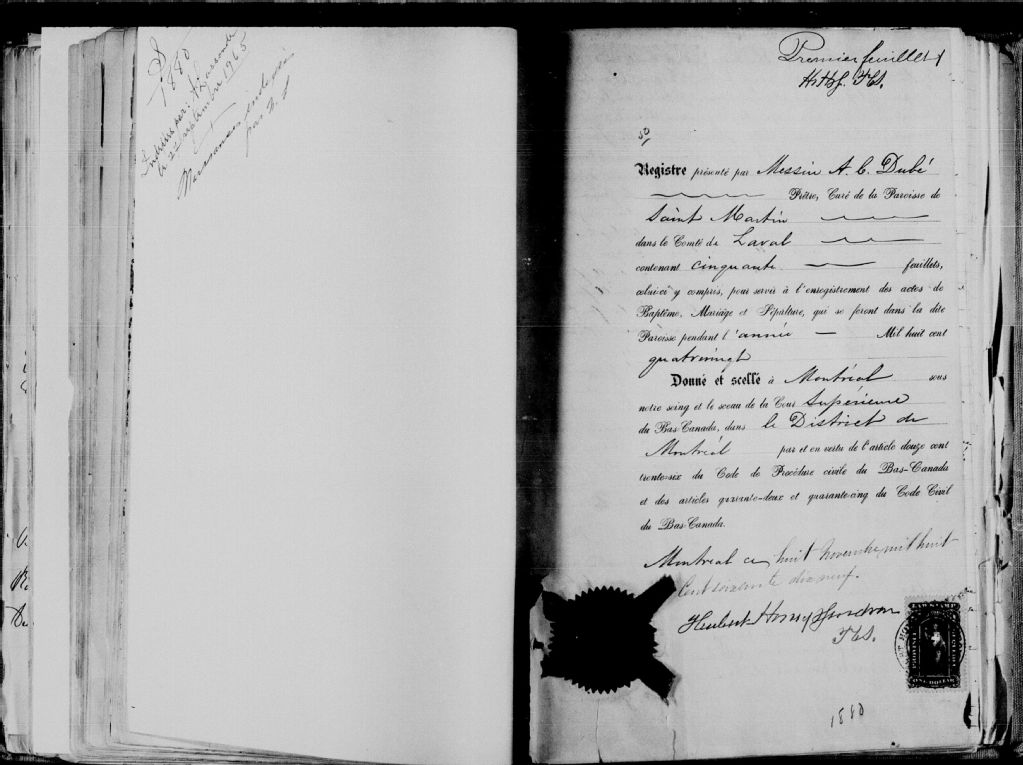 S
1880
Indexé par: 
le 22 septembre 1965
par
Premier feuillet
HHf. TCS.
50
Registre présenté par Messire A. C. Dubé
Prêtre, Curé de la Paroisse de
Saint Martin
dans le Comté de Laval
contenant cinquante feuillets,
celui-ci y compris, pour servir à l'enregistrement des actes de
Baptême, Mariage et Sépulture, qui se feront dans la dite
Paroisse pendant l'année — Mil huit cent
quatrevingt
Donné et scellé à Montréal sous
notre seing et le sceau de la Cour Supérieure
du Bas-Canada, dans le District de
Montréal par et en vertu de l'article douze cent
trente-six du Code de Procédure civile du Bas-Canada
et des articles quarante-deux et quarante-cinq du Code Civil
du Bas-Canada.
Montréal ce huit Novembre mil huit
Cent soixante dix neuf.
Hubert Honey
LAW STAMP
ONE DOLLAR
1880